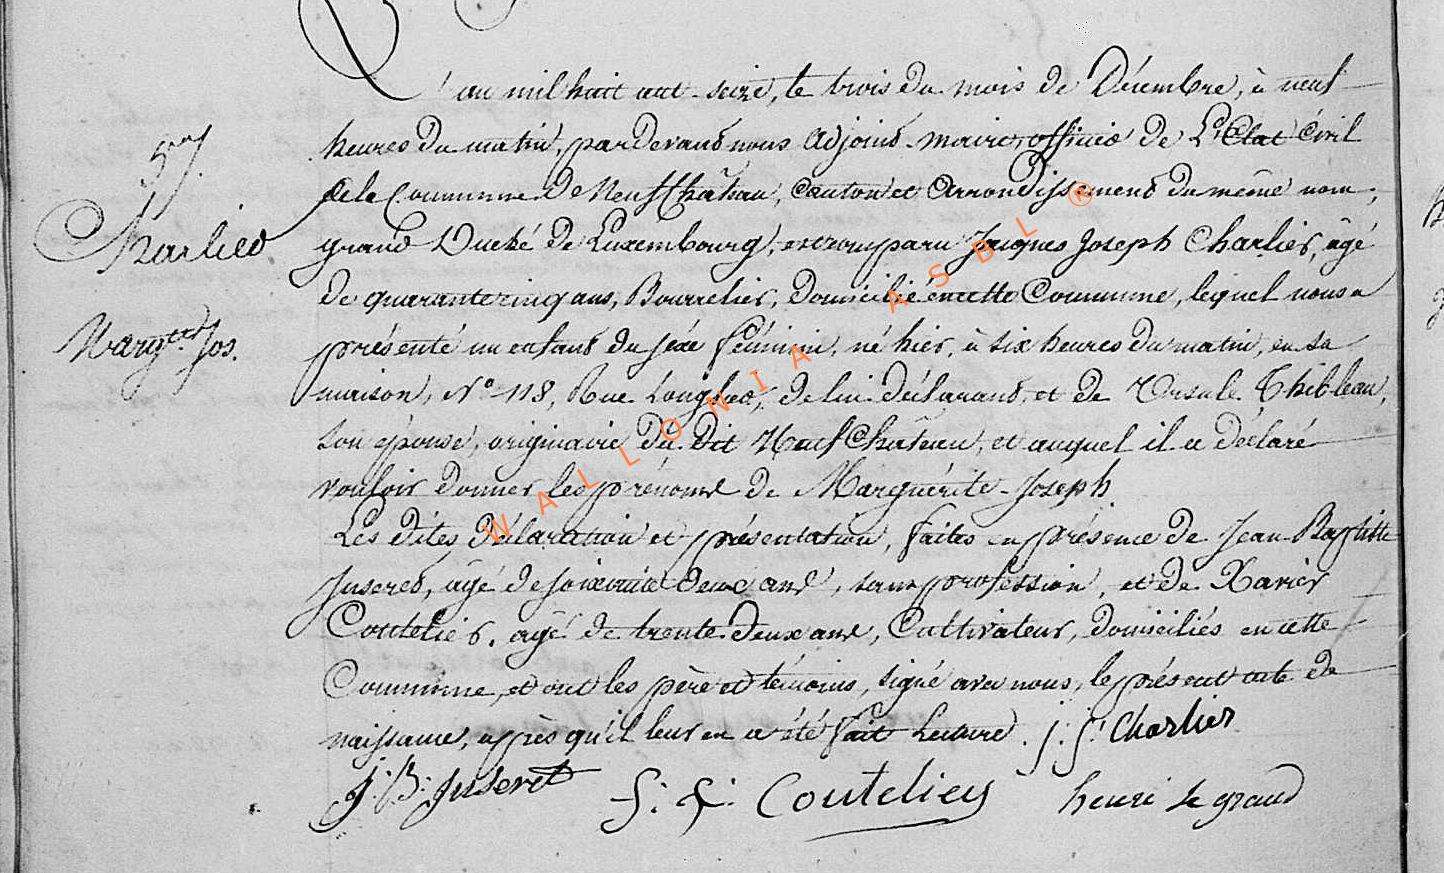 L'an mil huit cent seize, le trois du mois de Décembre, à neuf
heures du matin, pardevant nous adjoint-maire, officier de L'Etat Civil
de la Commune de Neufchâteau, canton et arrondissement du même nom,
57.
Charlier
Margte. Jos.
grand Duché de Luxembourg, est comparu Jacques Joseph Charlier, âgé
de quarante cinq ans, Bourrelier, domicilié en cette Commune, lequel nous a
présenté un enfant du sexe féminin, né hier, à six heures du matin, en sa
maison, N° 118, Rue, de lui déclarant, et de Ursule Thibleau,
son épouse, originaire du dit Neufchâteau, et auquel il a déclaré
vouloir donner les prénoms de Marguérite-Joseph.
Les dites Déclaration et présentation, faites en présence de Jean-Baptiste
Juseret, âgé de soixante deux ans, sans profession, et de Xavier
Coutelier, âgé de trente deux ans, Cultivateur, domiciliés en cette
Commune, et ont les père et témoins, signé avec nous, le présent acte de
naissance, après qu'il leur en a été fait Lecture. j. j. Charlier
J. B. Juseret f. x. Coutelier henri le grand
WALLONIA ASBL ®